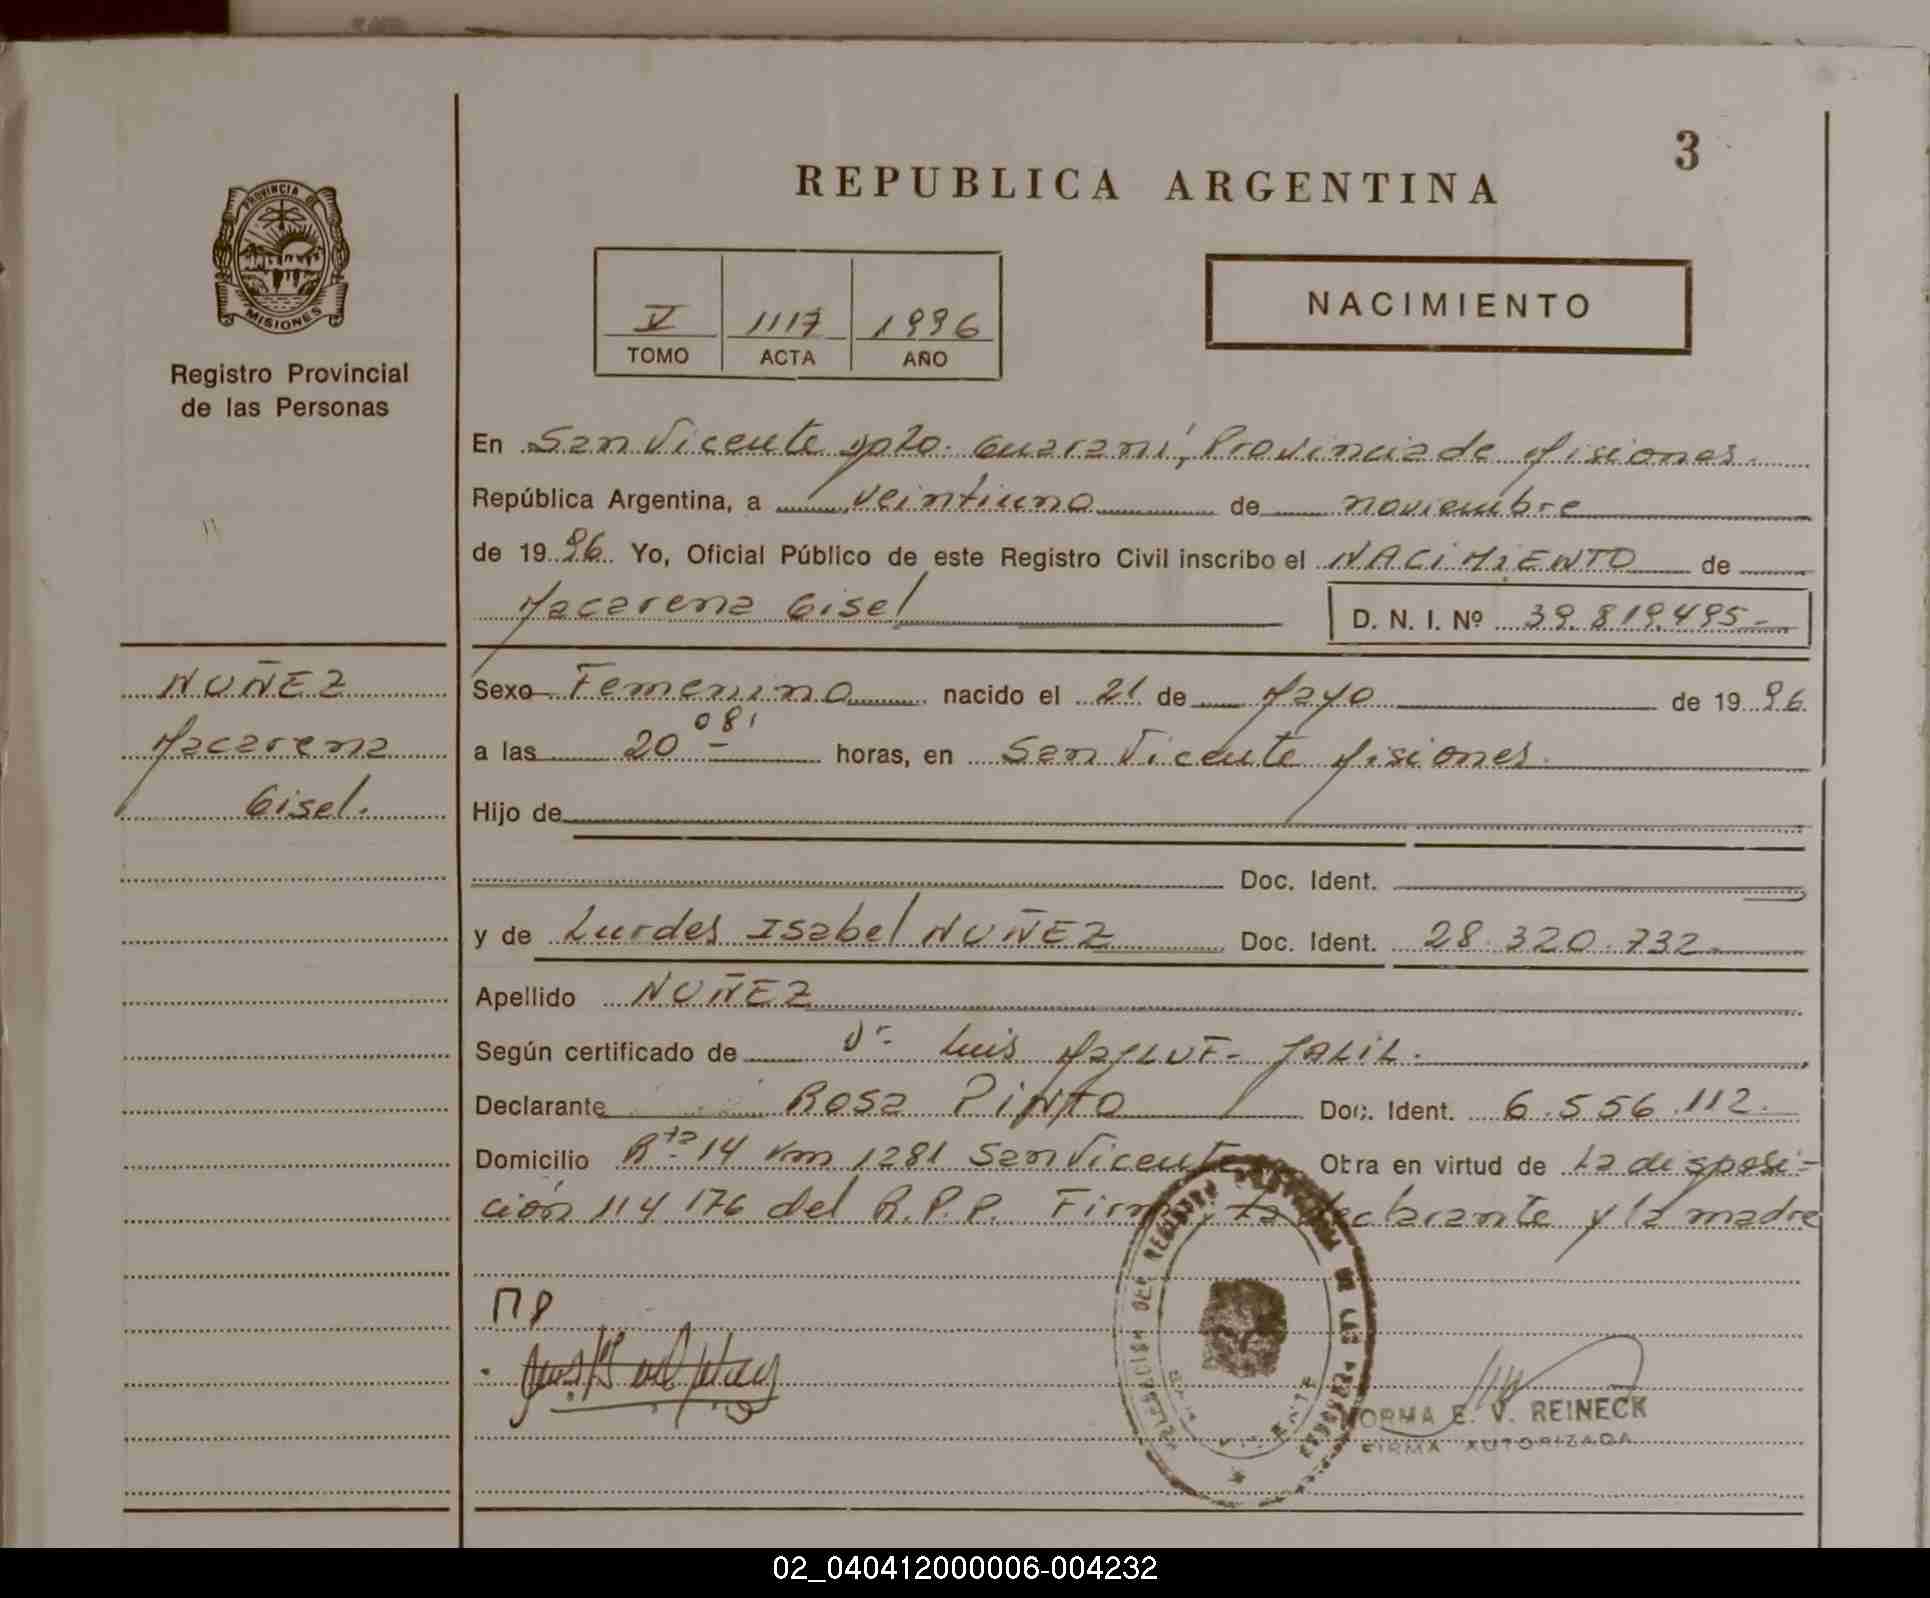 3
REPUBLICA ARGENTINA
PROVINCIA DE
MISIONES
Registro Provincial
de las Personas
V 1117 1996
TOMO ACTA AÑO
NACIMIENTO
En San Vicente Dpto. Guaraní, Provincia de Misiones.
República Argentina, a veintiuno de noviembre
de 1996 Yo, Oficial Público de este Registro Civil inscribo el NACIMIENTO de
Macarena Gisel D. N. I. Nº 39.819.495-
NUÑEZ
Macarena
Gisel.
Sexo Femenino nacido el 21 de Mayo de 1996
a las 20 08' horas, en San Vicente Misiones.
Hijo de
Doc. Ident.
y de Lurdes Isabel NUÑEZ Doc. Ident. 28.320.732-
Apellido NUÑEZ
Según certificado de Dr. Luis MAYLUF- JALIL.
Declarante Rosa PINTO Doc. Ident. 6.556.112.
Domicilio Rta. 14 Km 1281 San Vicente Obra en virtud de la disposi-
ción 114/76 del R.P.P. Firma la declarante y la madre
NORMA E. V. REINECK
FIRMA AUTORIZADA
02_040412000006-004232